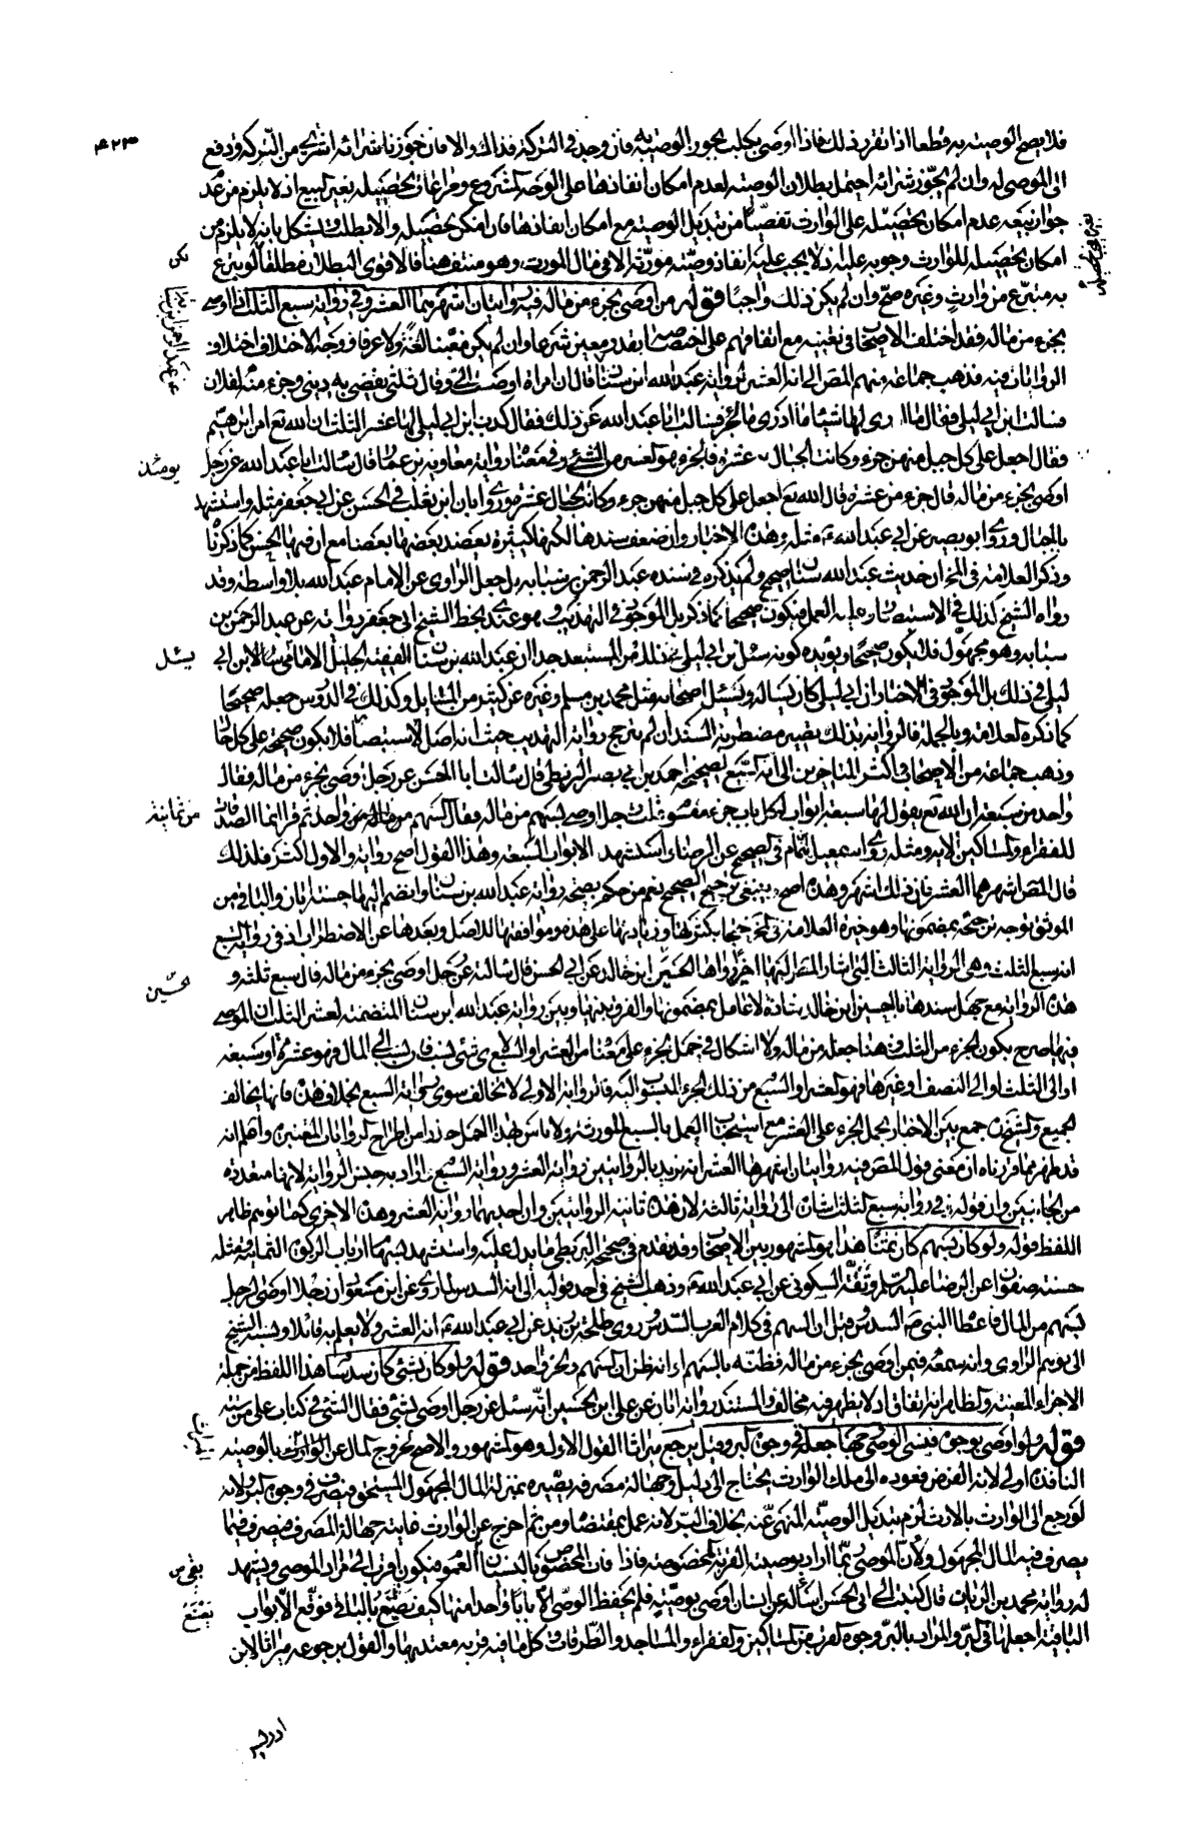 فلا يصح الوصية به قطعا اذا تقرر ذلك فاذا اوصى بكلب يجوز الوصية به فان وجد في التركة فذاك والا فان جوزنا شرائه اشترى من التركة ودفع
الى الموصى له وان لم يجوز شرائه احتمل بطلان الوصية لعدم امكان انفاذها على الوجه المشروع ومراعات تحصيله بغير البيع اذ لا يلزم من عدم
جواز بيعه عدم امكان تحصيله على الوارث تفصيا من تبديل الوصية مع امكان انفاذها فان امكن تحصيله والا بطلت ويشكل بانه لا يلزم من
امكان تحصيله للوارث وجوبه عليه اذ لا يجب عليه انفاذ وصية مورثه الا في مال المورث وهو منتف هنا فالاقوى البطلان مطلقا لو تبرع
به متبرع من وارث وغيره صح وان لم يكن ذلك واجبا قوله من اوصى بجزء من ماله فيه روايتان اشهرهما العشر وفي رواية سبع الثلث اذا اوصى
بجزء من ماله فقد اختلف الاصحاب في تعيينه مع اتفاقهم على اختصاصه بقدر معين شرعا وان لم يكن معينا لغة ولا عرفا ووجه الاختلاف اختلاف
الروايات فيه فذهب جماعة منهم المص الى انه العشر لرواية عبد الله ابن سنان قال ان امراة اوصت الي وقال ثلثي يقضى به ديني وجزء منه لفلان
فسالت ابن ابي ليلى فقال ما ارى لها شيئا ما ادرى ما الجزء فسالت ابا عبد الله عن ذلك فقال كذب ابن ابي ليلى لها عشر الثلث ان الله تع امر ابراهيم
فقال اجعل على كل جبل منهن جزء وكانت الجبال عشرة فالجزء هو العشر من الشيء وفي معناه رواية معاوية بن عمار قال سالت ابا عبد الله عن رجل
يومئذ
اوصى بجزء من ماله قال جزء من عشرة قال الله تع اجعل على كل جبل منهن جزء وكانت الجبال عشرة وروى ابان ابن تغلب في الحسن عن ابي جعفر مثله واستشهد
بالجبال وروى ابو بصير عن ابي عبد الله مثله وهذه الاخبار وان ضعف سندها لكنها كثيرة يعضد بعضها بعضا مع ان فيها الحسن كما ذكرنا
وذكر العلامة في المخ ان حديث عبد الله سنان صحيح ولم يذكر في سنده عبد الرحمن بن سيابة بل جعل الراوى عن الامام عبد الله بلا واسطة وقد
رواه الشيخ كذلك في الاستبصار وعليه العمل فيكون صحيحا كما ذكر بل الموجود في التهذيب وهو عندي بخط الشيخ ابي جعفر رواية عن عبد الرحمن بن
سيابة وهو مجهول فلا يكون صحيحا ويؤيده كونه سئل ابن ابي ليلى عن ذلك فمن المستبعد جدا ان عبد الله بن سنان الفقيه الجليل الامامي يسئل ابن ابي
يسئل
ليلى في ذلك بل الموجود في الاخبار ان ابي ليلى كان يساله ويسئل اصحابه مثل محمد بن مسلم وغيره عن كثير من المسائل وكذلك في الدروس جعله صحيحا
كما ذكره العلامة وبالجملة فالرواية بذلك يصير مضطربة السند ان لم يترجح رواية التهذيب حيث انه اصل الاستبصار فلا يكون صحيحة على كل حال
وذهب جماعة من الاصحاب في اكثر المتاخرين الى انه السبع لصحيحة احمد بن ابي نصر البزنطي قال سالت ابا الحسن عن رجل اوصى بجزء من ماله فقال
واحد من سبعة ان الله تع يقول لها سبعة ابواب لكل باب جزء مقسوم قلت رجل اوصى بسهم من ماله فقال السهم من ثمانية واحد ثم قرا انما الصدقات
من ثمانية
للفقراء والمساكين الاية ومثله روى اسمعيل بن همام في الصحيح عن الرضا واستشهد بالابواب السبعة وهذا القول اصح رواية والاول اكثر فلذلك
قال المص اشهرهما العشر فان ذلك اشهر وهذه اصح فينبغي ترجيح الصحيح نعم من حكم بصحة رواية عبد الله بن سنان وانضم اليها حسنة ابان والباقي من
الموثق توجه ترجيحه بمضمونها وهو خيرة العلامة في المخ محتجا بكثرتها وزيادتها على هذه وموافقتها للاصل وبعدها عن الاضطراب اذ في رواية السبع
انه سبع الثلث وهي الرواية الثالثة التي اشار المص اليها اخيرا رواها الحسين ابن خالد عن ابي الحسن قال سالته عن رجل اوصى بجزء من ماله قال سبع ثلثه و
الحسين
هذه الرواية مع جهل سندها بالحسين ابن خالد شاذة لا عامل بمضمونها والفرق بينها وبين رواية عبد الله ابن سنان المتضمنة لعشر الثلث ان الموصى
فيها صرح بكون الجزء من الثلث وهنا جعله من ماله ولا اشكال في حمل الجزء على معناه من العشر او السبع اى شئ نسب فان نسب الى المال فهو عشره او سبعه
او الى الثلث او الى النصف او غيرها فهو العشر او السبع من ذلك الجزء المنسوب اليه فالرواية الاولى لا تخالف سوى رواية السبع بخلاف هذه فانها يخالف
الجميع والشيخ جمع بين الاخبار بحمل الجزء على العشر مع استحباب العمل بالسبع للورثة ولا باس بهذا الحمل حذرا من اطراح الروايات المعتبرة واعلم انه
قد ظهر مما قررناه ان معنى قول المص فيه روايتان اشهرهما العشر انه يريد بالروايتين رواية العشر ورواية السبع اراد به جنس الرواية لانها متعددة
من الجانبين وان قوله وفي رواية سبع الثلث اشارة الى رواية ثالثة لا ان هذه ثانية الروايتين وان احديهما رواية العشر وهذه الاخرى كما توهم ظاهر
اللفظ قوله ولو كان بسهم كان ثمنا هذا هو المشهور بين الاصحاب وقد تقدم في صحيحة البزنطي ما يدل عليه واستشهد لها ارباب الزكوة الثمانية ومثله
حسنة صفوان عن الرضا عليه السلم وموثقة السكوني عن ابي عبد الله وذهب الشيخ في احد قوليه الى انه السدس لما روى عن ابن مسعود ان رجلا اوصى لرجل
بسهم من المال فاعطاه النبي ص السدس وقيل ان السهم في كلام العرب السدس وروى طلحة بن زيد عن ابي عبد الله انه العشر ولا نعلم به قائلا ونسبه الشيخ
الى توهم الراوى وانه سمعه فيمن اوصى بجزء من ماله فظنه بالسهم او انه ظن ان السهم والجزء واحد قوله ولو كان بشئ كان سدسا هذا اللفظ من جملة
الاجزاء المعينة والظاهر انه اتفاقي اذ لا يظهر فيه مخالف والمستند رواية ابان عن علي ابن الحسين انه سئل عن رجل اوصى بشئ فقال الشئ في كتاب علي من ستة
قوله ولو اوصى بوجوه فنسى الوصى وجها جعله في وجوه البر وقيل يرجع ميراثا القول الاول وهو المشهور والاصح لخروج المال عن الوارث بالوصية
النافذة اولى لانه الفرض فعوده الى ملك الوارث يحتاج الى دليل وجهالة مصرفه يصيره بمنزلة المال المجهول المستحق فيصرف في وجوه البر ولانه
لو رجع الى الوارث بالارث لزم تبديل الوصية المنهى عنه بخلاف البر لانه عمل بمقتضاها ومن ثم اخرج عن الوارث غايته جهالة المصرف فيصرف فيما
يصرف فيه المال المجهول ولان الموصى ربما اراد بوصيته القربة المخصوصة فاذا فات الخصوص بالنسيان بقي العموم فيكون اقرب الى مراد الموصى ويشهد
له رواية محمد بن الريان قال كتبت الى ابي الحسن اساله عن انسان اوصى بوصية فلم يحفظ الوصى الا بابا واحدا منها كيف يصنع بالباقي فوقع الابواب
يصنع
الباقية اجعلها في البر والمراد بالبر وجوه القرب من المساكين والفقراء والمساجد والطرقات وكل ما فيه قربة يعتد بها والقول برجوعه ميراثا لابن
ادريس